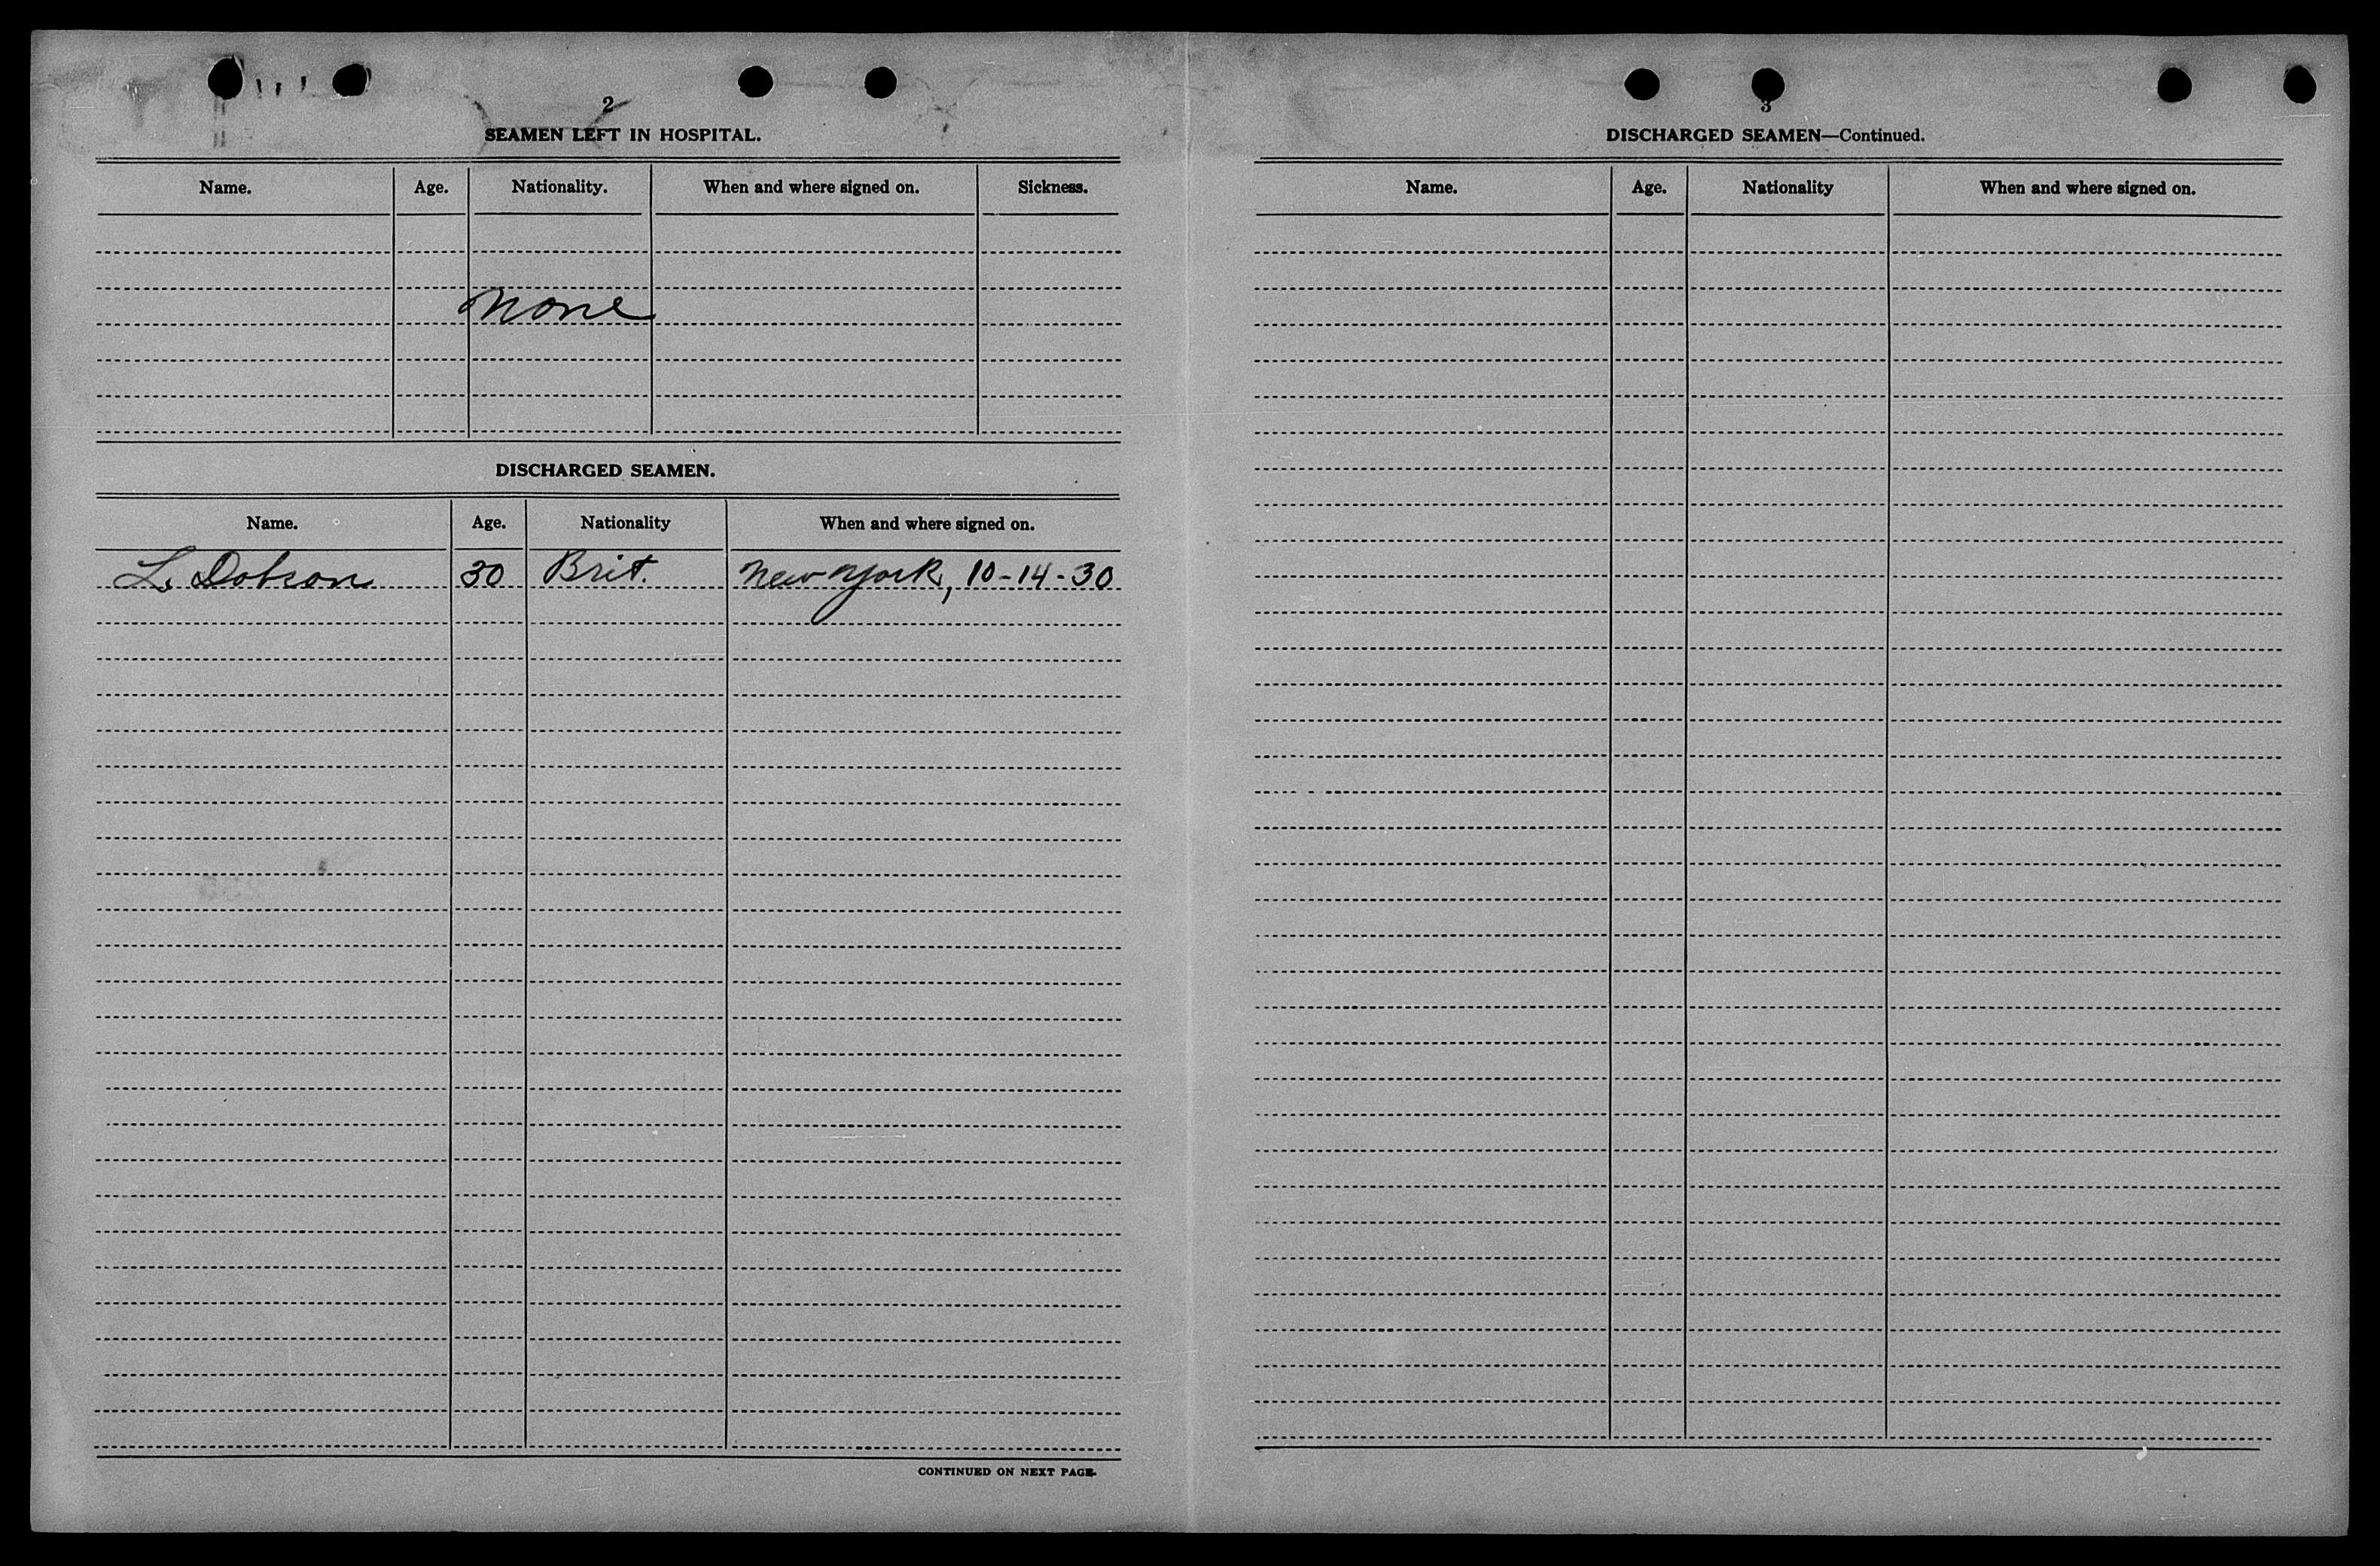 2
SEAMEN LEFT IN HOSPITAL.
Name. Age. Nationality. When and where signed on. Sickness.
None
DISCHARGED SEAMEN.
Name. Age. Nationality When and where signed on.
L. Dobson 30 Brit. New York, 10-14-30
CONTINUED ON NEXT PAGE.
3
DISCHARGED SEAMEN—Continued.
Name. Age. Nationality When and where signed on.